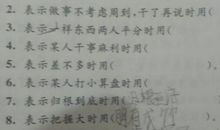 2. 表示做事不考虑周到,干了再说时用(
3. 表示一样东西两人平分时用(
4. 表示某人干事麻利时用(
5. 表示差不多时用(
6. 表示某人打小算盘时用(
7. 表示归根到底时用(
8. 表示把握大时用(